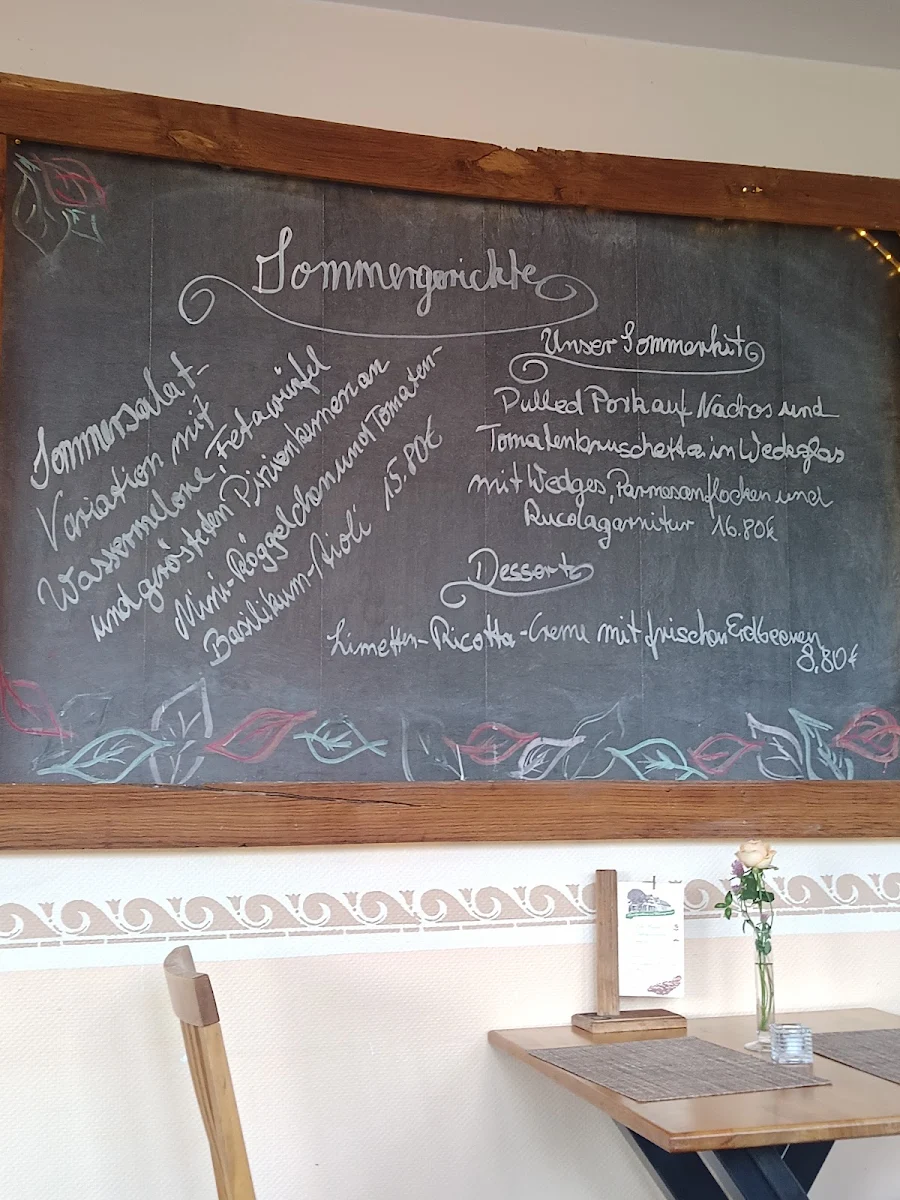 Sommergerichte
Sommersalat-
Variation mit
Wassermelone Fetawürfel
und gerösteten Pinienkernen an
Mini-Röggelchen und Tomaten-
Basilikum-Aioli 15.80€
Unser Sommerhit
Pulled Pork auf Nachos und
Tomatenbruschetta im Weckglas
mit Wedges, Parmesanflocken und
Rucolagarnitur 16.80€
Dessert
Limetten-Ricotta-Creme mit frischen Erdbeeren
8,80€